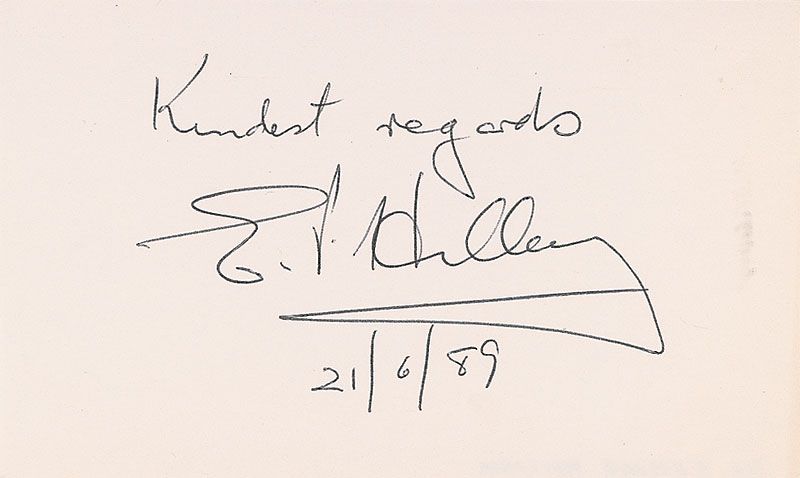 Kindest regards
E. P. Hillary
21/6/89